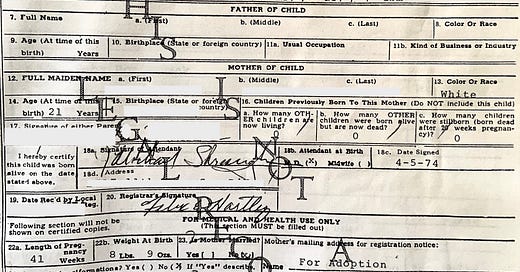 FATHER OF CHILD
7. Full Name a. (First) b. (Middle) c. (Last) 8. Color Or Race
9. Age (At time of this birth) Years 10. Birthplace (State or foreign country) 11a. Usual Occupation 11b. Kind of Business or Industry
MOTHER OF CHILD
12. FULL MAIDEN NAME a. (First) b. (Middle) c. (Last) 13. Color Or Race
White
14. Age (At time of this birth) 21 Years 15. Birthplace (State or foreign country) 16. Children Previously Born To This Mother (Do NOT include this child)
a. How many OTHER children are now living? 0 b. How many children were born alive but are now dead? 0 c. How many children were stillborn (born dead after 20 weeks pregnancy)? 0
17. Signature of either Parent
I hereby certify this child was born alive on the date stated above.
18a. Signature of Attendant 18b. Attendant at Birth
M.D. (X) Midwife ( ) 18c. Date Signed
4-5-74
18d. Address
19. Date Rec'd by Local Reg. 20. Registrar's Signature
Hartley
Following section will not be shown on certified copies.
FOR MEDICAL AND HEALTH USE ONLY
(This section MUST be filled out)
22a. Length of Pregnancy 41 Weeks 22b. Weight At Birth 8 Lbs. 9 Ozs. 23. Is Mother Married? Mother's mailing address for registration notice:
For Adoption
Yes ( ) No (X If "Yes" describe) Name
THIS IS
LEGAL NOT A
RECO